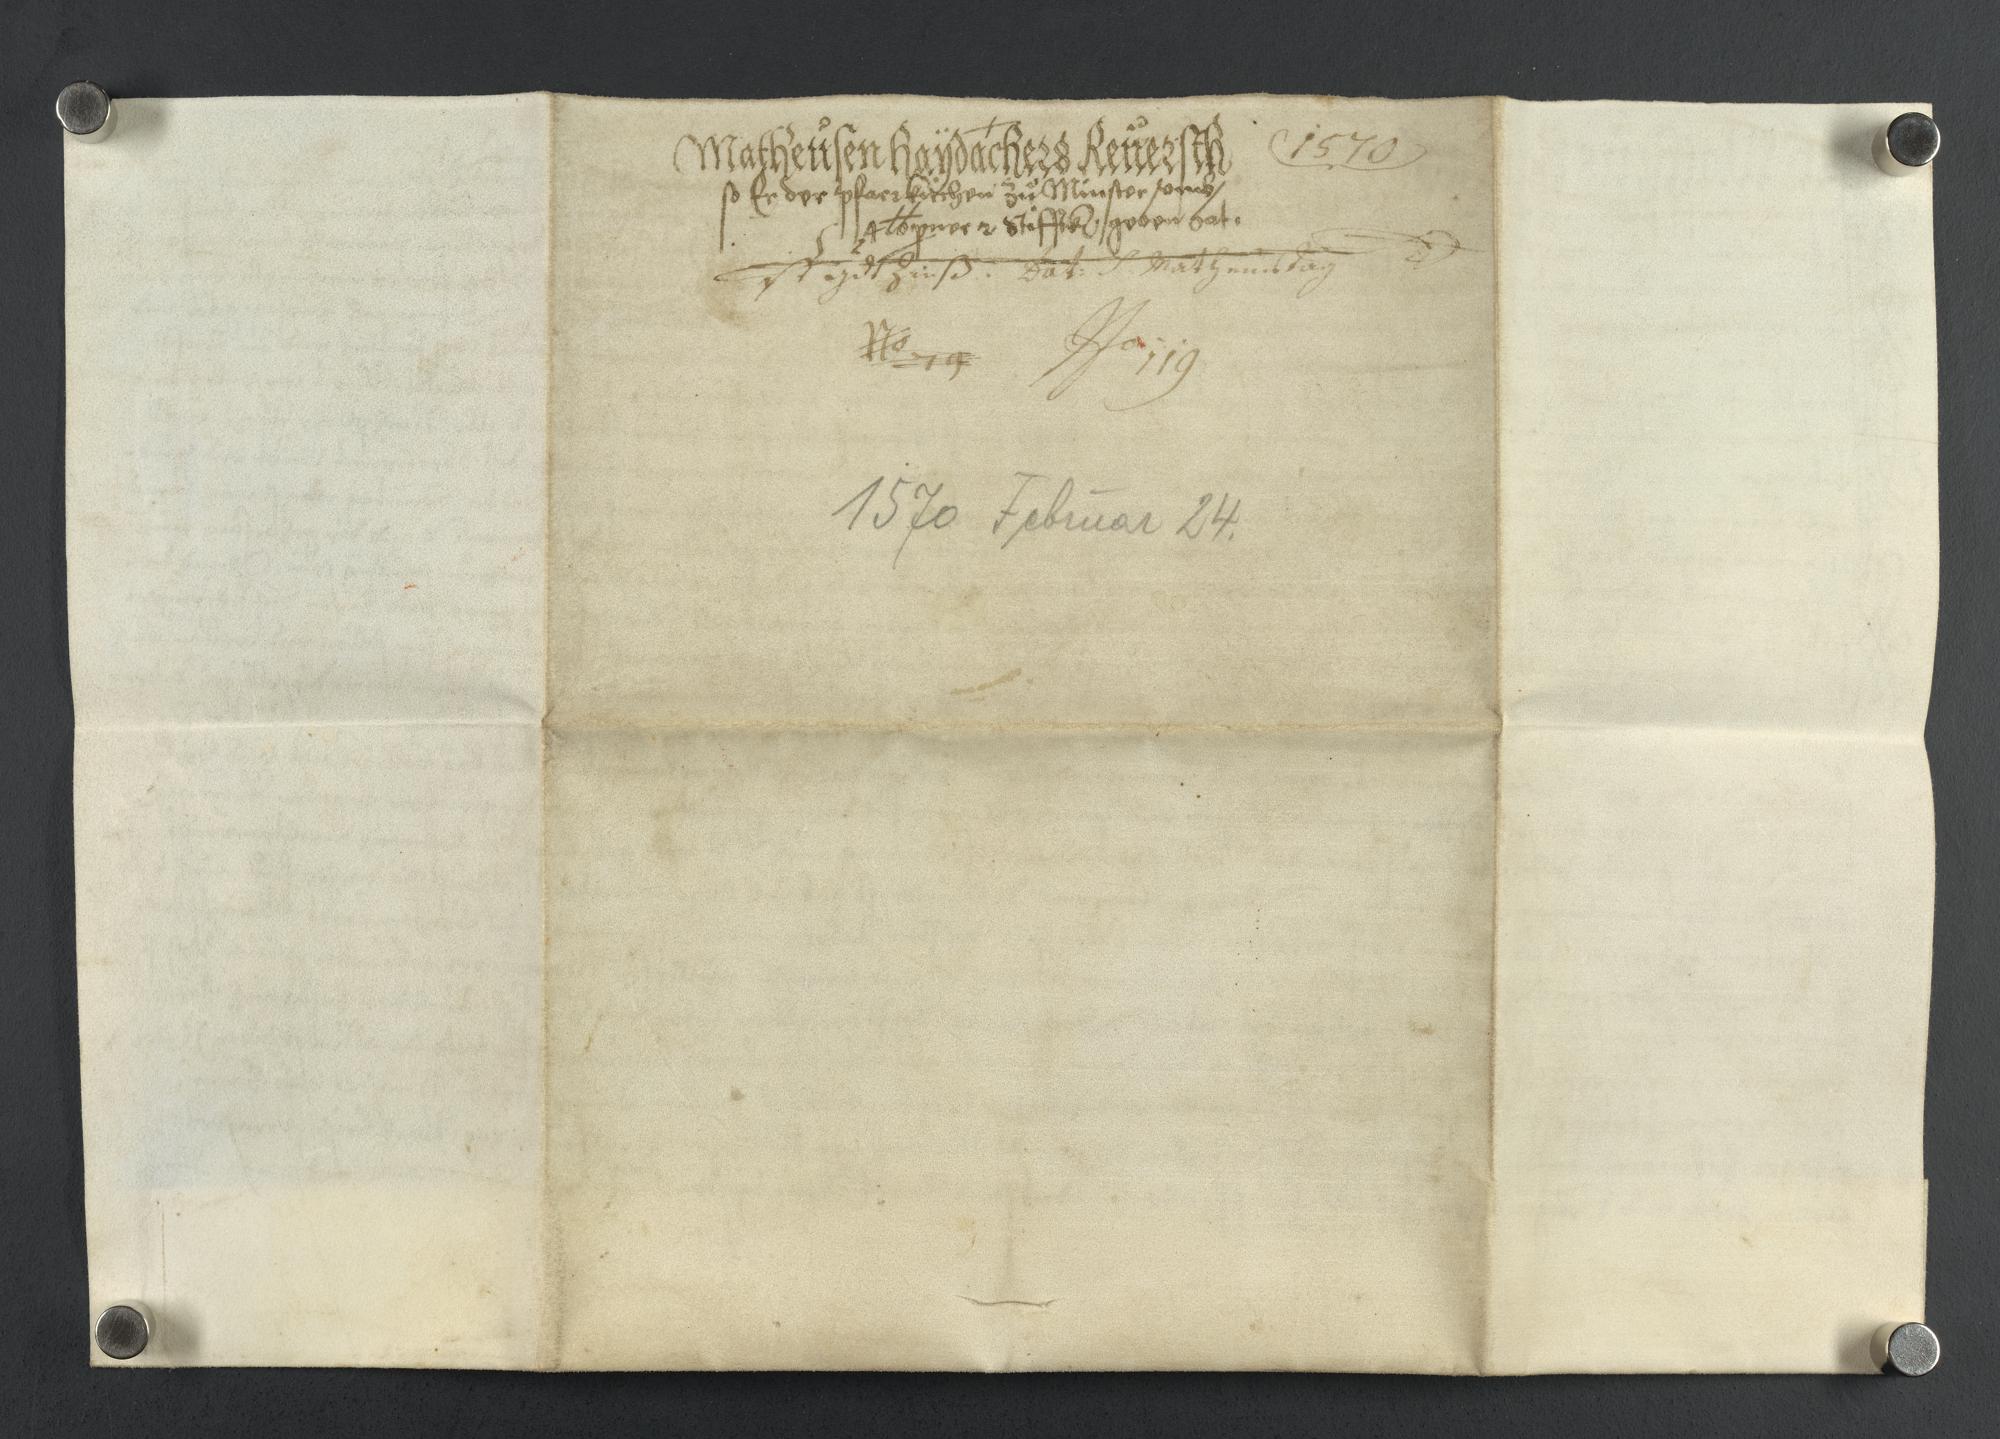 Matheüsen Haÿdachers Reüersth 1570
so Er der pfarrkirchen Zu Münster
Stifft geben hat.
Zinß. Dat: S. Matheus tag
No 79 No 119
1570 Februar 24.